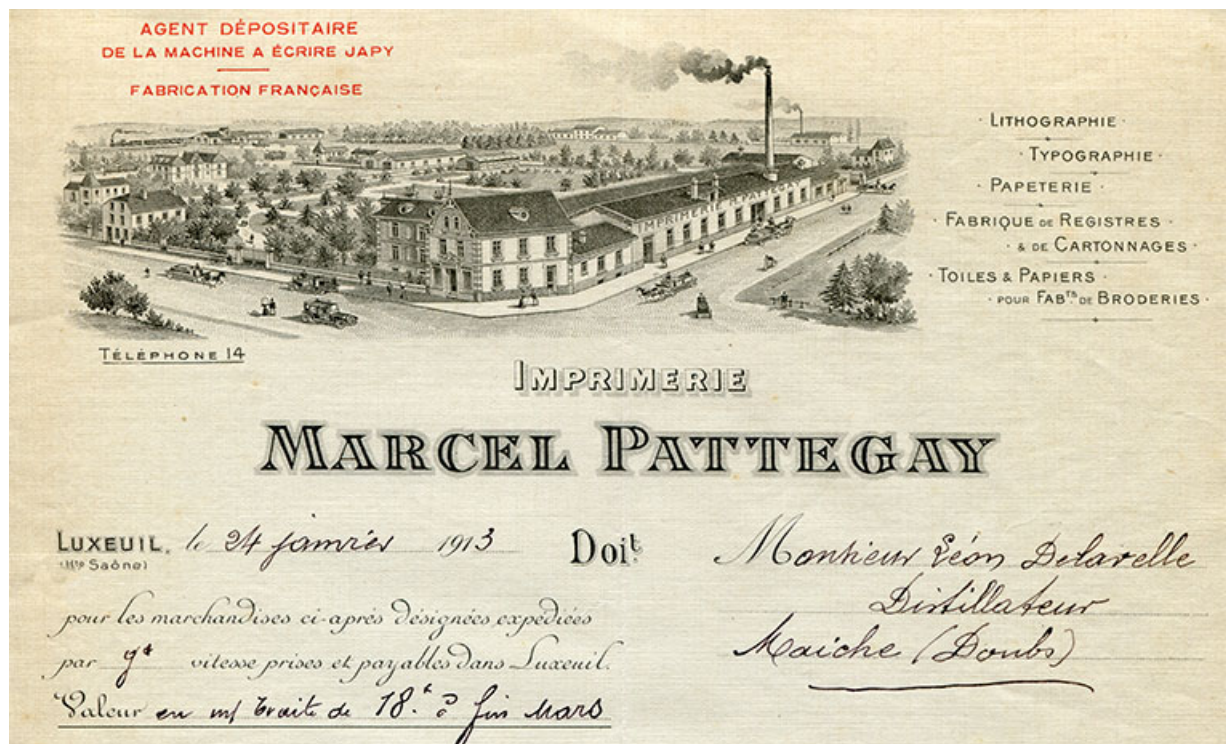 AGENT DÉPOSITAIRE
DE LA MACHINE A ÉCRIRE JAPY
FABRICATION FRANÇAISE
IMPRIMERIE PATTEGAY
· LITHOGRAPHIE ·
· TYPOGRAPHIE ·
· PAPETERIE ·
· FABRIQUE DE REGISTRES ·
· & DE CARTONNAGES ·
· TOILES & PAPIERS ·
· POUR FABTS DE BRODERIES ·
TÉLÉPHONE 14
IMPRIMERIE
MARCEL PATTEGAY
LUXEUIL, le 24 janvier 1913
(Hte Saône)
Doit
Monsieur Léon Delavelle
Distillateur
Maiche (Doubs)
pour les marchandises ci-après désignées expédiées
par gde vitesse prises et payables dans Luxeuil.
Valeur en m/ traite de 18. à fin Mars